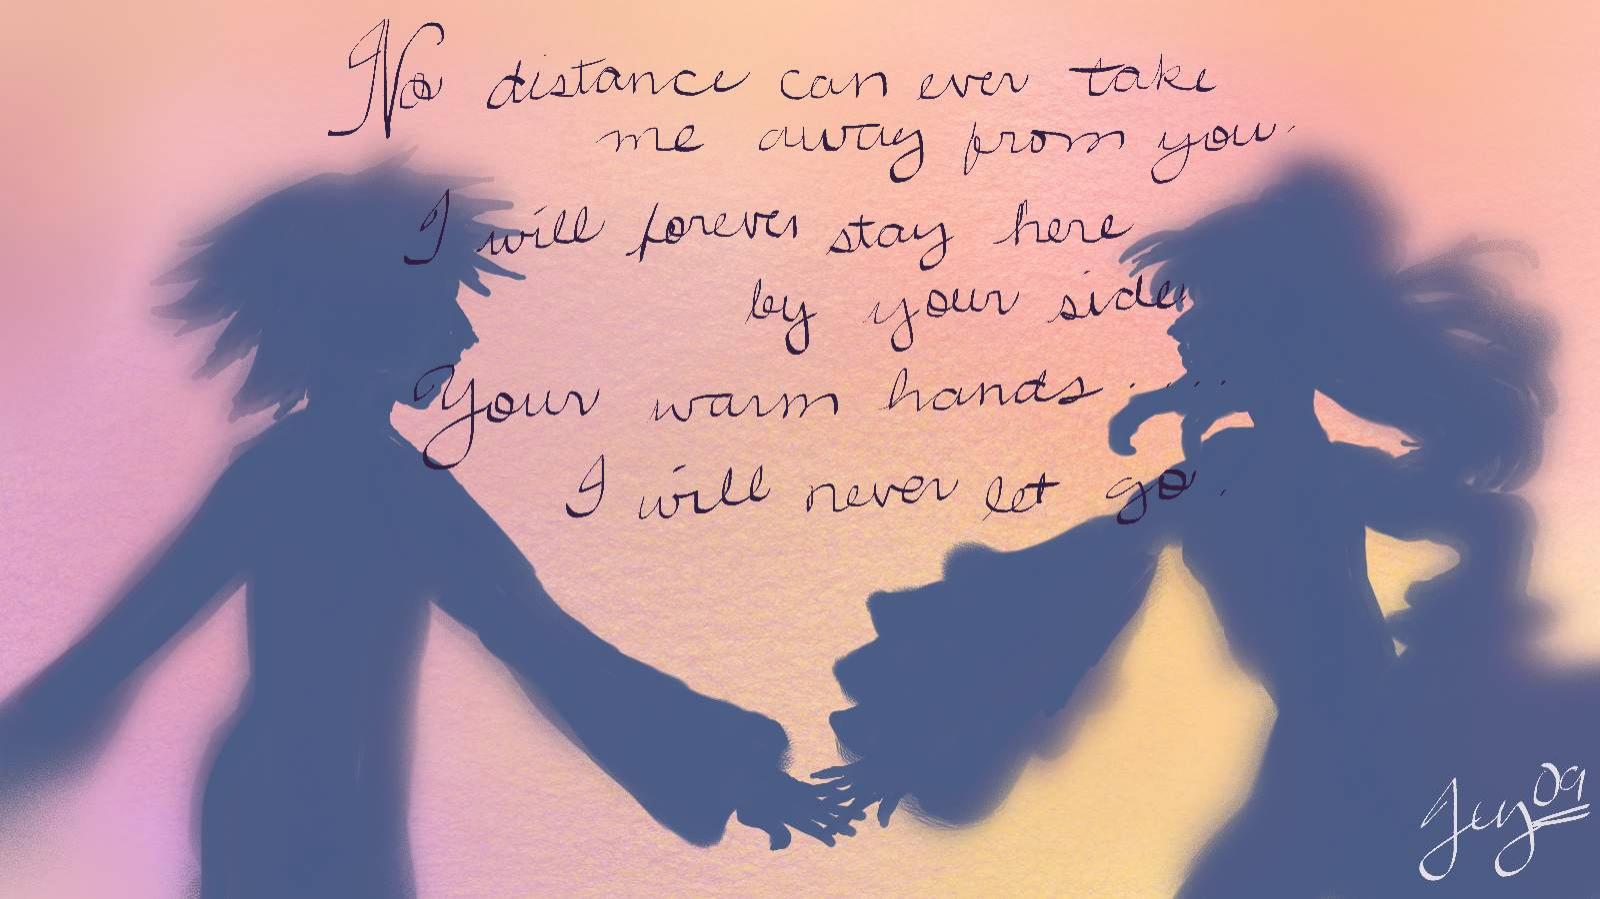 No distance can ever take
me away from you.
I will forever stay here
by your side
Your warm hands.....
I will never let go.
Jey 09